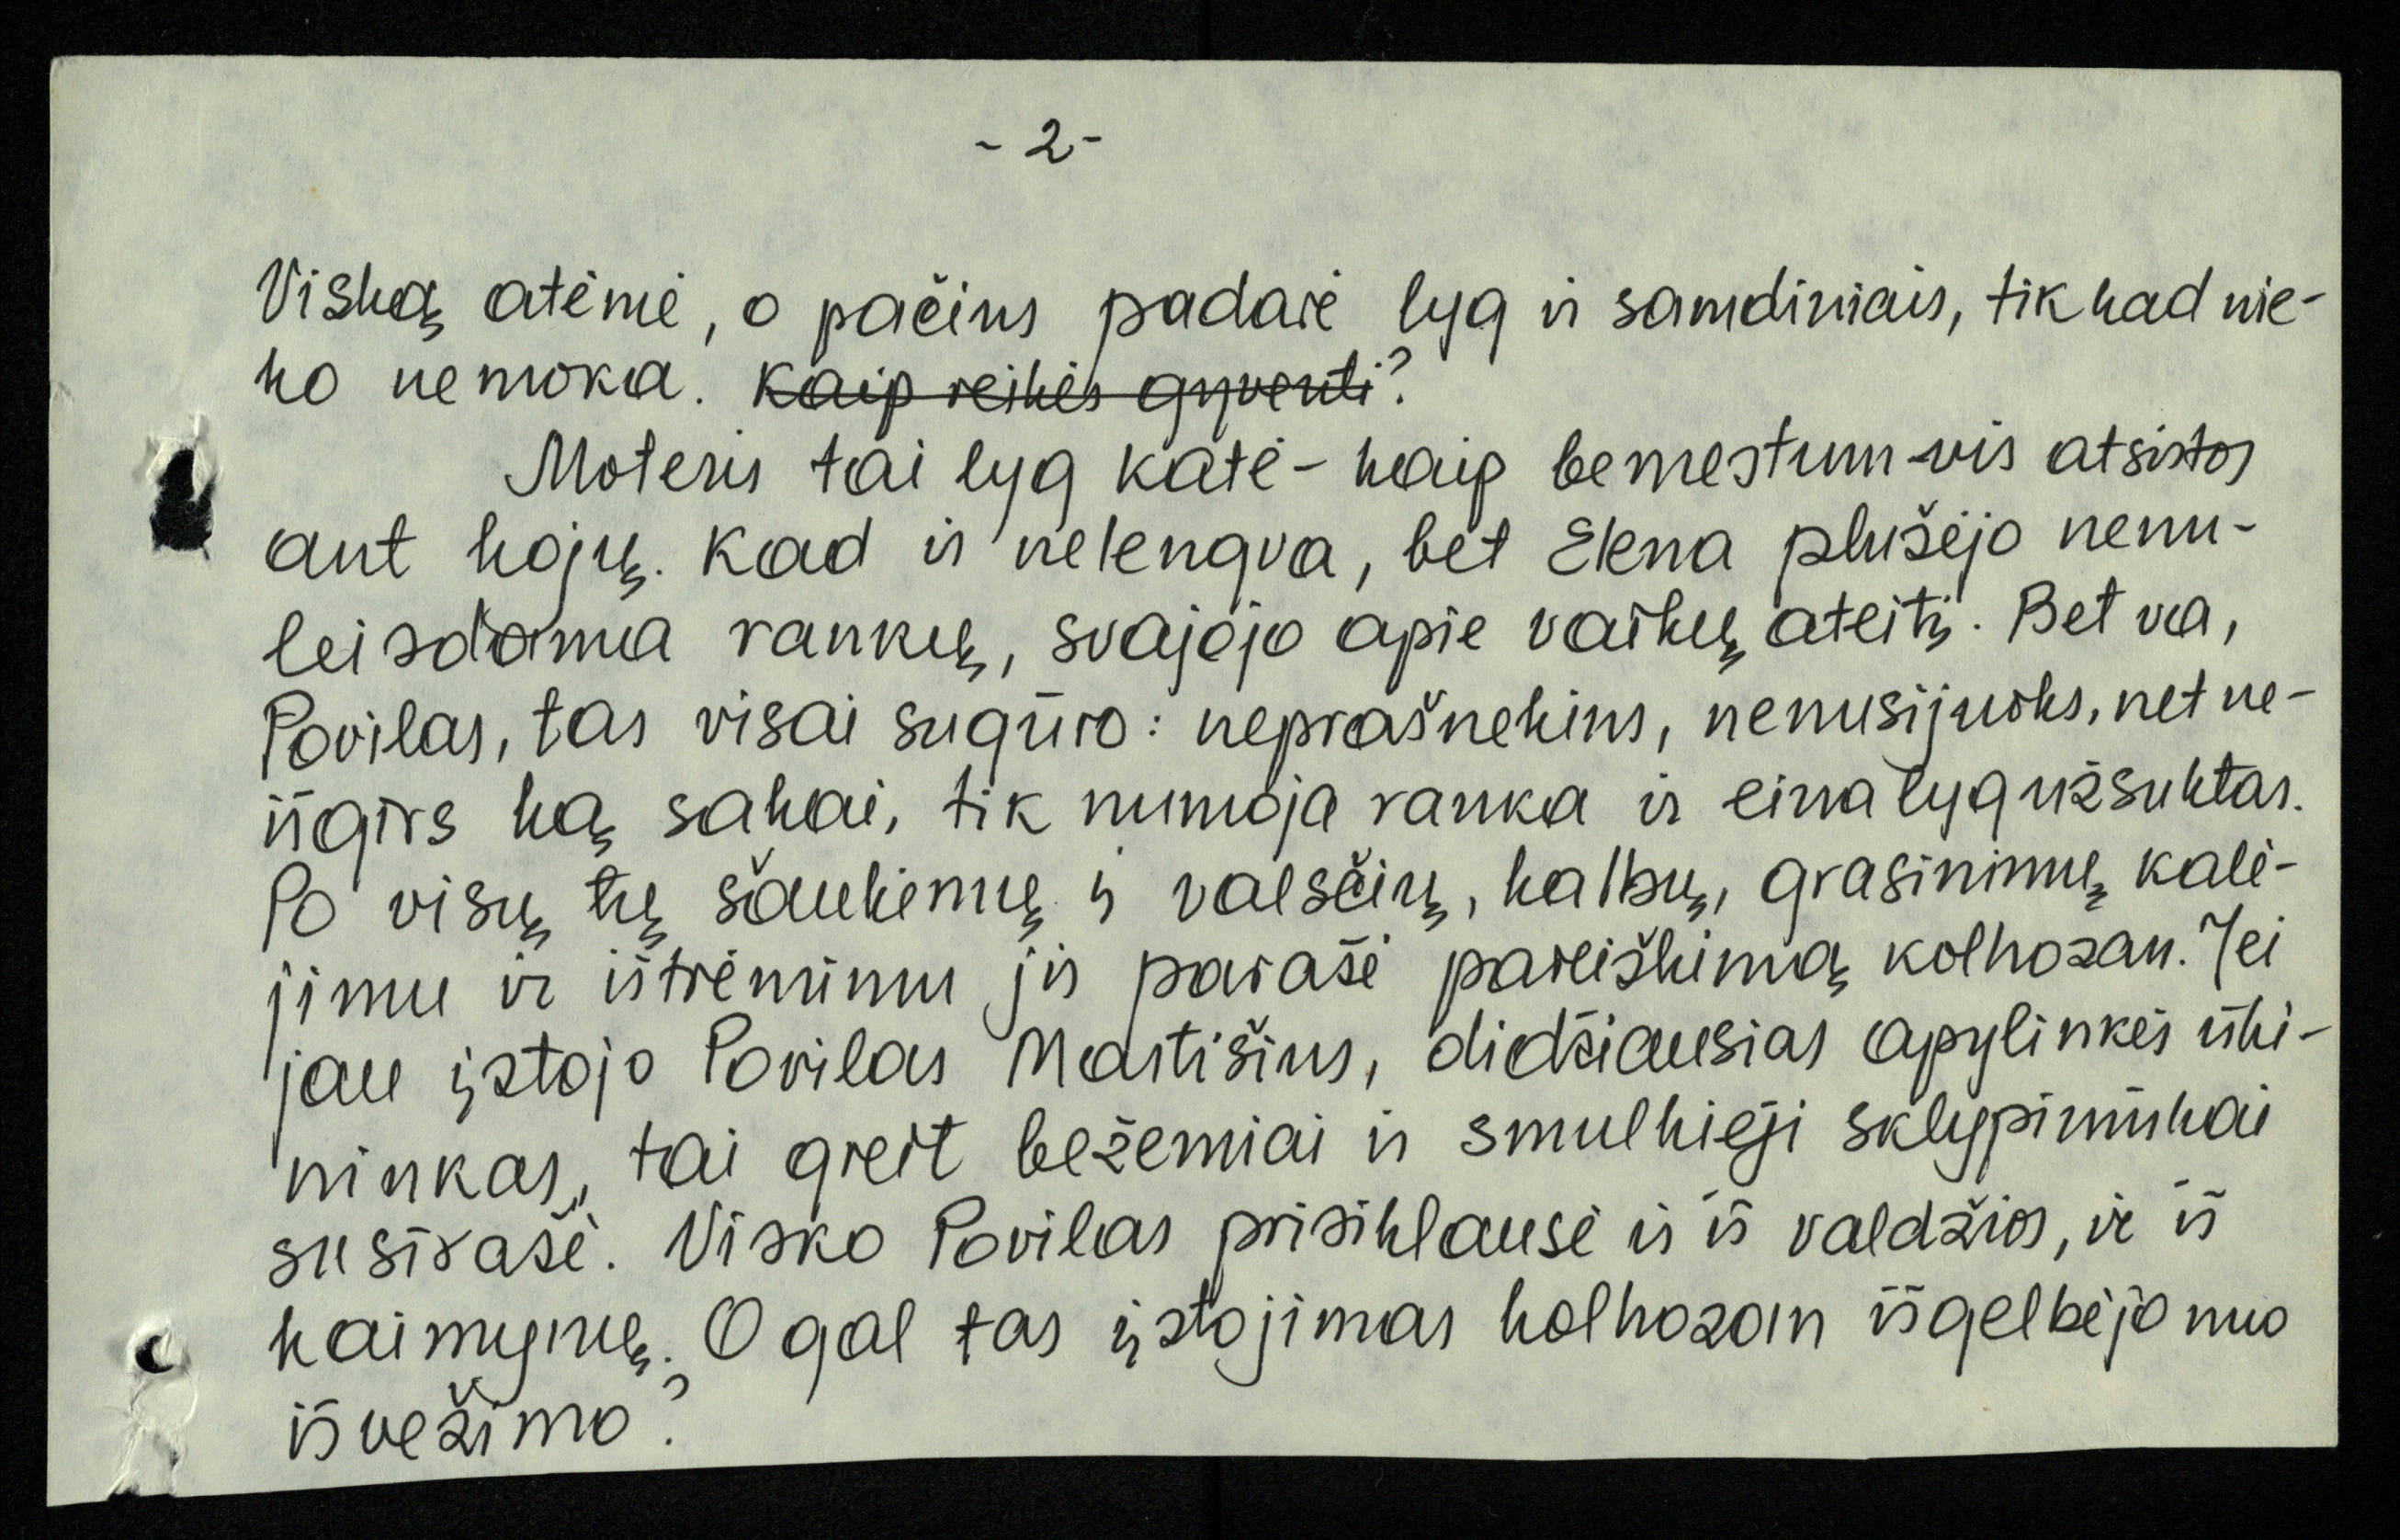 - 2 -
Viską atėmė, o pačius padarė lyg ir samdiniais, tik kad nie-
ko nemoka. Kaip reikės gyventi?
Moteris tai lyg katė - kaip bemestum - vis atsistos
ant kojų. Kad ir nelengva, bet Elena plušėjo nenu-
leisdama rankų, svajojo apie vaikų ateitį. Bet va,
Povilas, tas visai sugūro: neprašnekins, nenusijuoks, net ne-
išgirs ką sakai, tik numoja ranka ir eina lyg užsuktas.
Po visų tų šaukiemų į valsčių, kalbų, grasinimų kalė-
jimu ir ištrėmimu jis parašė pareiškimą kolhozan. Jei
jau įstojo Povilas Martišius, didžiausias apylinkės ūki-
ninkas, tai greit bežemiai ir smulkieji sklypininkai
susirašė. Visko Povilas prisiklausė ir iš valdžios, ir iš
kaimynų. O gal tas įstojimas kolhozan išgelbėjo nuo
išvežimo?